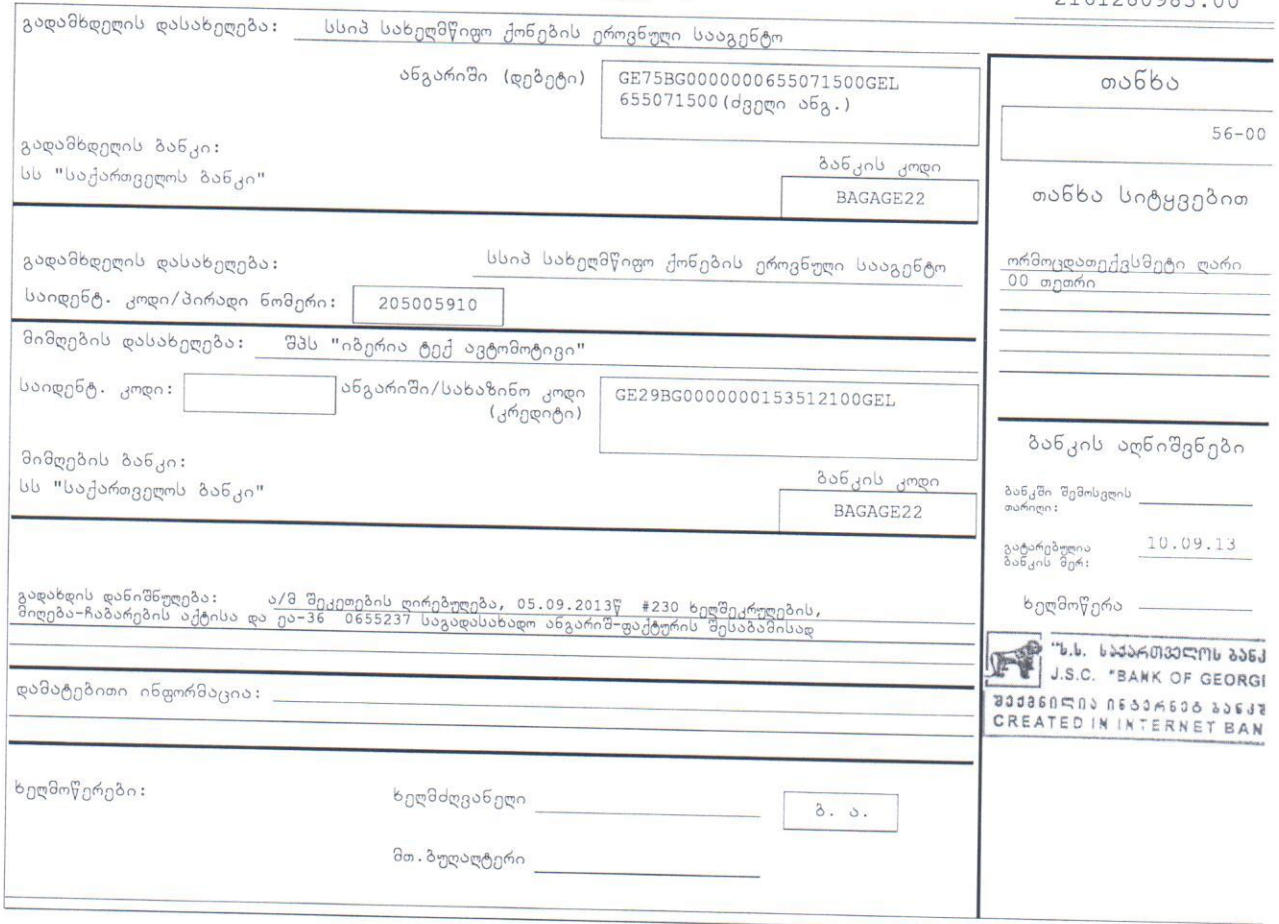 გადამხდელის დასახელება: სსიპ სახელმწიფო ქონების ეროვნული სააგენტო
ანგარიში (დებეტი)
GE75BG0000000655071500GEL
655071500(ძველი ანგ.)
გადამხდელის ბანკი:
სს "საქართველოს ბანკი"
ბანკის კოდი
BAGAGE22
გადამხდელის დასახელება: სსიპ სახელმწიფო ქონების ეროვნული სააგენტო
საიდენტ. კოდი/პირადი ნომერი: 205005910
მიმღების დასახელება: შპს "იბერია ტექ ავტომოტივი"
საიდენტ. კოდი:
ანგარიში/სახაზინო კოდი
(კრედიტი)
GE29BG0000000153512100GEL
მიმღების ბანკი:
სს "საქართველოს ბანკი"
ბანკის კოდი
BAGAGE22
გადახდის დანიშნულება: ა/მ შეკეთების ღირებულება, 05.09.2013წ #230 ხელშეკრულების,
მიღება-ჩაბარების აქტისა და ეა-36 0655237 საგადასახადო ანგარიშ-ფაქტურის შესაბამისად
დამატებითი ინფორმაცია:
ხელმოწერები:
ხელმძღვანელი
ბ. ა.
მთ.ბუღალტერი
თანხა
56-00
თანხა სიტყვებით
ორმოცდათექვსმეტი ლარი
00 თეთრი
ბანკის აღნიშვნები
ბანკში შემოსვლის
თარიღი:
გატარებულია
ბანკის მერ:
10.09.13
ხელმოწერა
"ს.ს. საქართველოს ბანკ
J.S.C. "BANK OF GEORGI
შექმნილია ინტერნეტ ბანკშ
CREATED IN INTERNET BAN